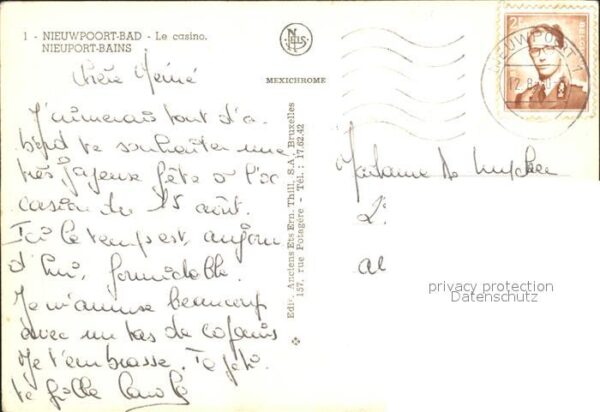 1 - NIEUWPOORT-BAD - Le casino.
NIEUPORT-BAINS
NELS
MEXICHROME
Chère
J'aimerais tout d'a
bord te souhaiter une
très joyeuse fête à l'oc
casion du 15 août.
Ici le temps est, aujour
d'hui, formidable.
Je m'amuse beaucoup
avec un tas de copains
Je t'embrasse. Ta peti
te fille
Edit. Anciens Ets Ern. Thill, S.A., Bruxelles
157, rue Potagère - Tél. : 17.62.42
2F
NIEUWPOORT 1
Madame de
2
privacy protection
Datenschutz